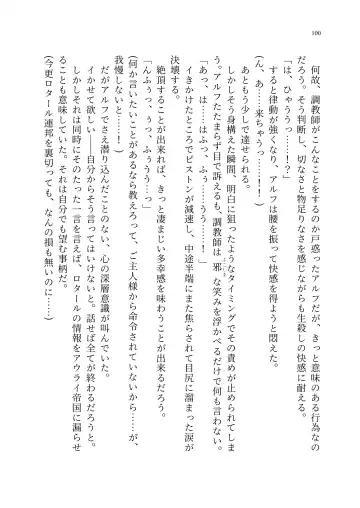 100
何故、調教師がこんなことをするのか戸惑ったアルフだが、きっと意味のある行為なの
だろう。そう判断し、切なさと物足りなさを感じながらも生殺しの快感に耐える。
「は、ひゃうっ……！？」
すると律動が強くなり、アルフは腰を振って快感を得ようと悶えた。
(ん、あ……来ちゃうっ……！！)
あともう少しで達せられる。
しかしそう身構えた瞬間、明白に狙ったようなタイミングでその責めが止められてしま
う。アルフたたまらず目で訴えるも、調教師は邪な笑みを浮かべるだけで何も言わない。
「あっ、は……はふっ、ふぅ……うう……！」
イきかけたところでピストンが減速し、中途半端にまた焦らされて目尻に溜まった涙が
決壊する。
絶頂することが出来れば、きっと凄まじい多幸感を味わうことが出来るだろう。
「んふぅっ、ぅっ、ふぅうう……っ」
(何か言いたいことがあるなら教えろって、ご主人様から命令されていないから……が、
我慢しないと……！)
だがアルフでさえ潜り込んだことのない、心の深層意識が叫んでいた。
イかせて欲しい――自分からそう言ってはいけないと。話せば全てが終わるだろうと。
しかしそれは同時にそのたった一言を言えば、ロタールの情報をアウライ帝国に漏らせ
ることも意味していた。それは自分でも望む事柄だ。
(今更ロタール連邦を裏切っても、なんの損も無いのに……)